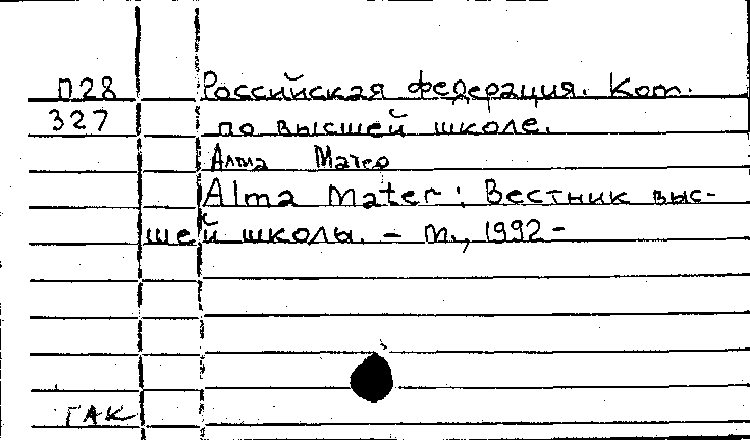 П28 Российская федерация. Ком.
327 по высшей школе.
Алма Матер
Alma Mater: Вестник выс-
шей школы. - М., 1992 -
ГАК